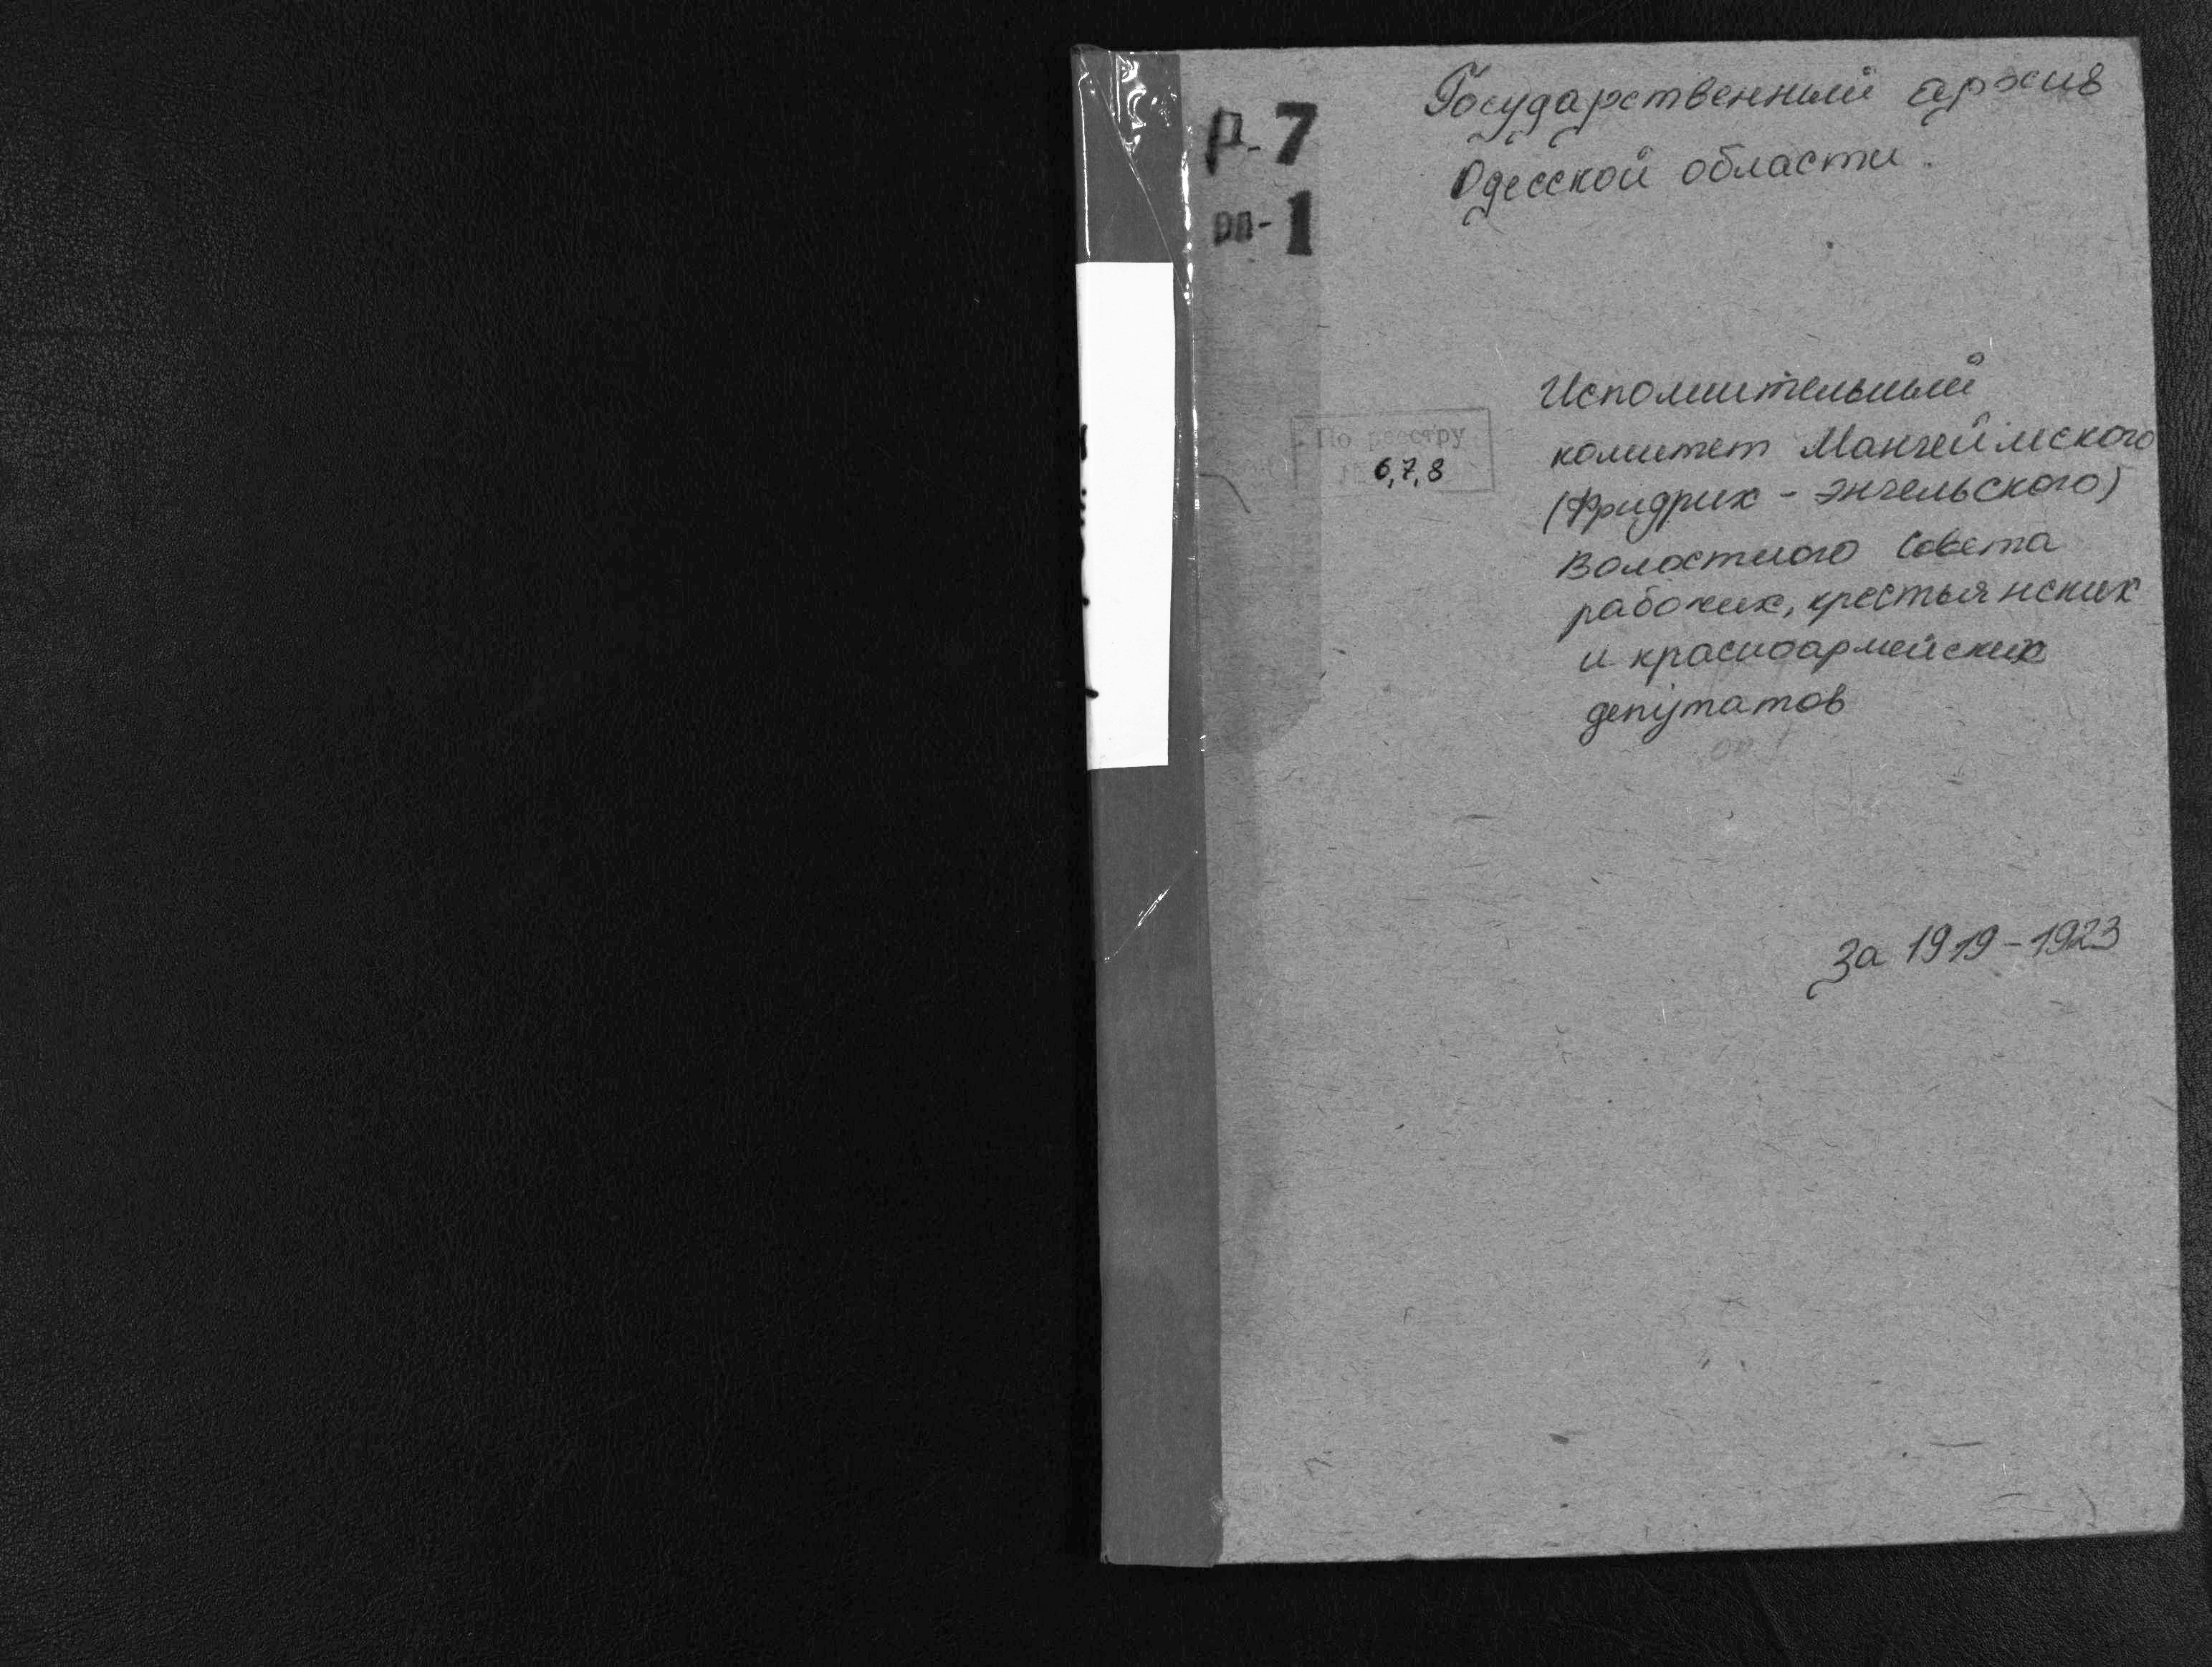 р-7
оп-1
Государственный архив
Одесской области.
По реестру
6,7,8
Исполнительный
комитет Мангеймского
(Фридрих - Энгельского)
Волостного Совета
рабочих, крестьянских
и красноармейских
депутатов
оп. 1
За 1919-1923